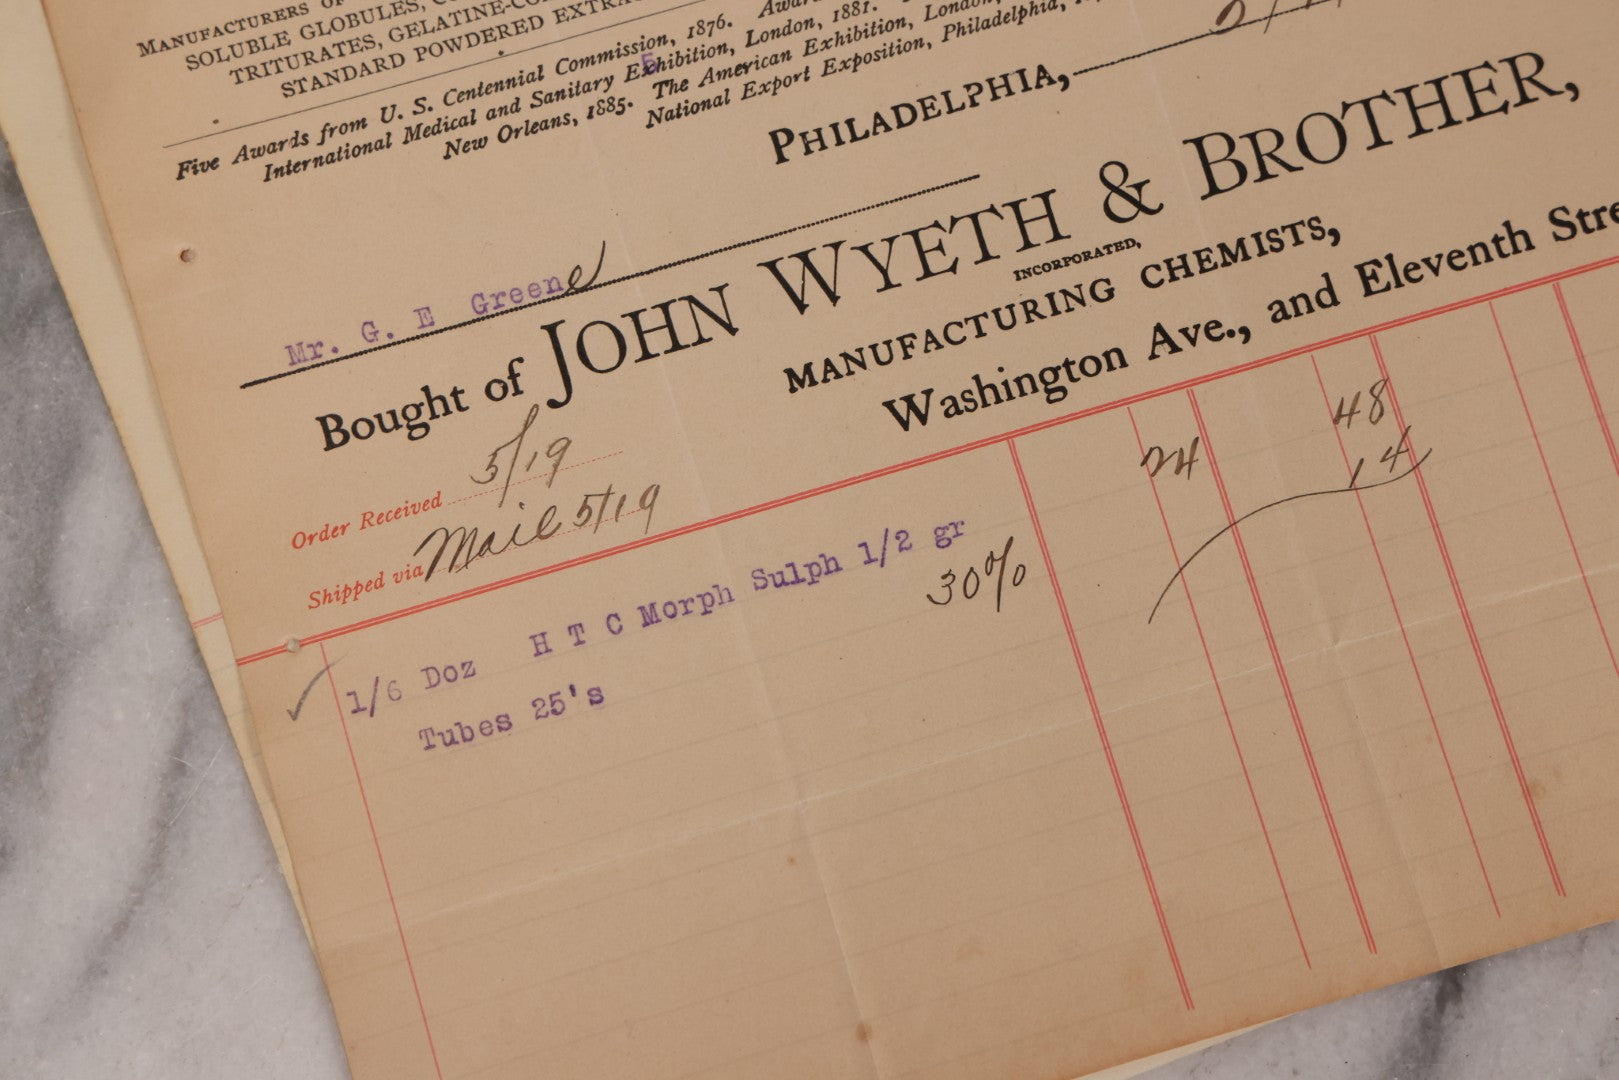 MANUFACTURERS OF
SOLUBLE GLOBULES,
TRITURATES, GELATINE-CO
STANDARD POWDERED EXTRA
Five Awards from U. S. Centennial Commission, 1876. Awar
International Medical and Sanitary Exhibition, London, 1881.
New Orleans, 1885. The American Exhibition, London,
National Export Exposition, Philadelphia,
5
PHILADELPHIA,
Mr. G. E Greene
Bought of JOHN WYETH & BROTHER,
INCORPORATED,
MANUFACTURING CHEMISTS,
Washington Ave., and Eleventh Stre
Order Received 5/19
Shipped via Mail 5/19
1/6 Doz H T C Morph Sulph 1/2 gr 24 48
Tubes 25's 30% 14